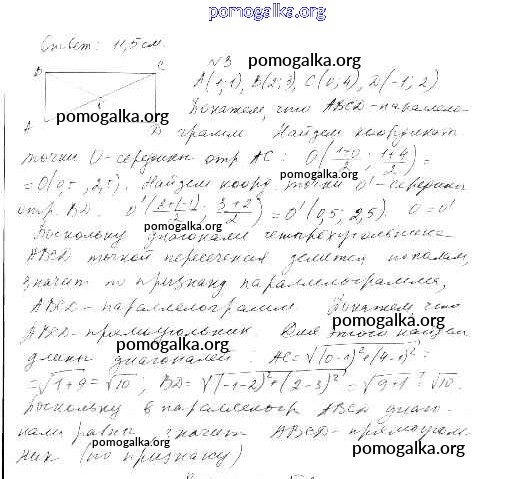 pomogalka.org
Ответ: 11,5 см.
N 3
B C
pomogalka.org
A(1;1), B(2;3), C(0;4), D(-1;2)
pomogalka.org
Докажем, что ABCD - параллело-
A D грамм Найдем координат.
точки О-середины отр AC: O(1+0/2; 1+4/2) =
pomogalka.org
= O(0,5; 2,5). Найдем коорд. точки O' - середины
отр. BD. O'(2+(-1)/2; 3+2/2) = O'(0,5; 2,5). O = O'
pomogalka.org
Поскольку диагонали четырехугольника
ABCD точкой пересечения делятся пополам,
pomogalka.org
значит по признаку параллелограмма,
ABCD - параллелограмм Докажем что
pomogalka.org
ABCD - прямоугольник. Для этого найдем
длины диагоналей: AC = √(0-1)²+(4-1)² =
pomogalka.org
= √1+9 = √10; BD = √(-1-2)²+(2-3)² = √9+1 = √10.
Поскольку в параллелогр ABCD диаго-
pomogalka.org
нали равны, значит ABCD - прямоуголь
pomogalka.org
ник (по признаку)